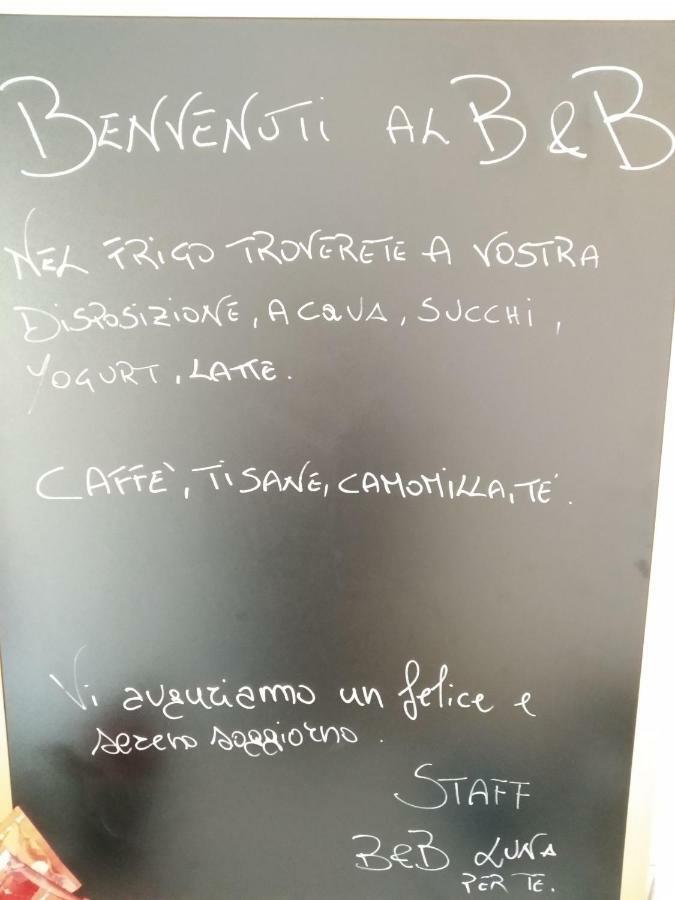 BENVENUTi AL B & B
NEL FRIGO TROVERETE A VOSTRA
DiSPOSIZIONE, ACQUA, SUCCHI,
YOGURT, LATTE.
CAFFÈ, TiSANE, CAMOMILLA, TÉ.
Vi auguriamo un felice e
sereno soggiorno.
STAFF
B&B LUNA
PER TE.